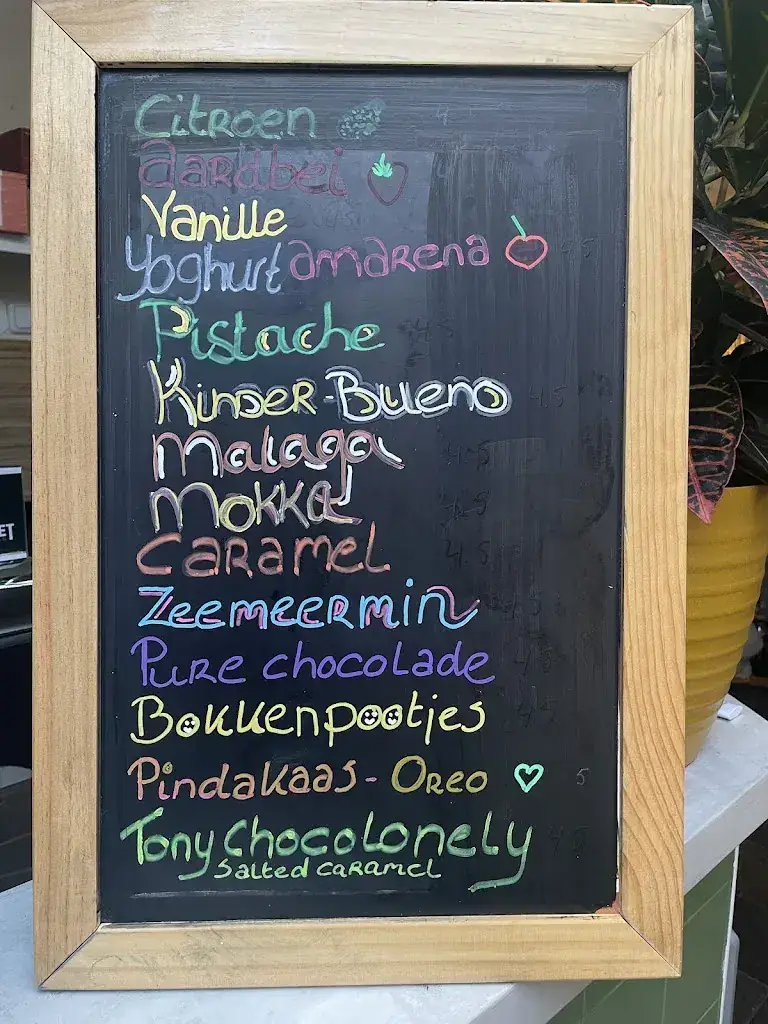 Citroen
aardbei
Vanille
Yoghurt amarena
Pistache
Kinder-Bueno
Malaga
Mokka
Caramel
Zeemeermin
Pure chocolade
Bokkenpootjes
Pindakaas - Oreo
Tony Chocolonely
Salted caramel